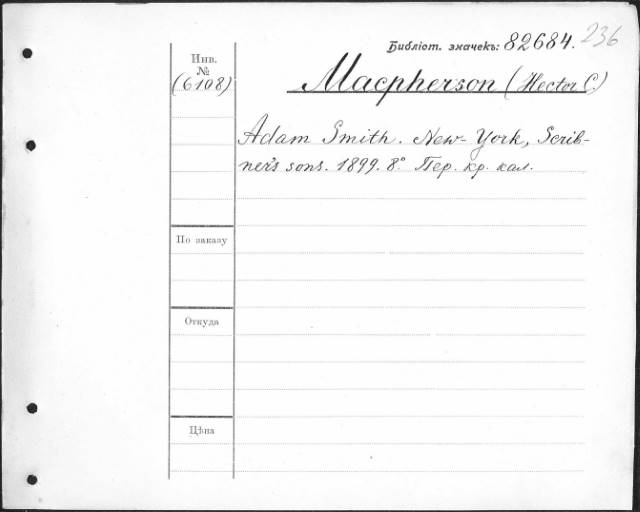 Библіот. значекъ: 82684. 236
Инв.
№
(6108)
Macpherson (Hector C.)
Adam Smith. New-York, Scrib-
ner's sons. 1899. 8°. Пер. кр. кал.
По заказу
Откуда
Цѣна